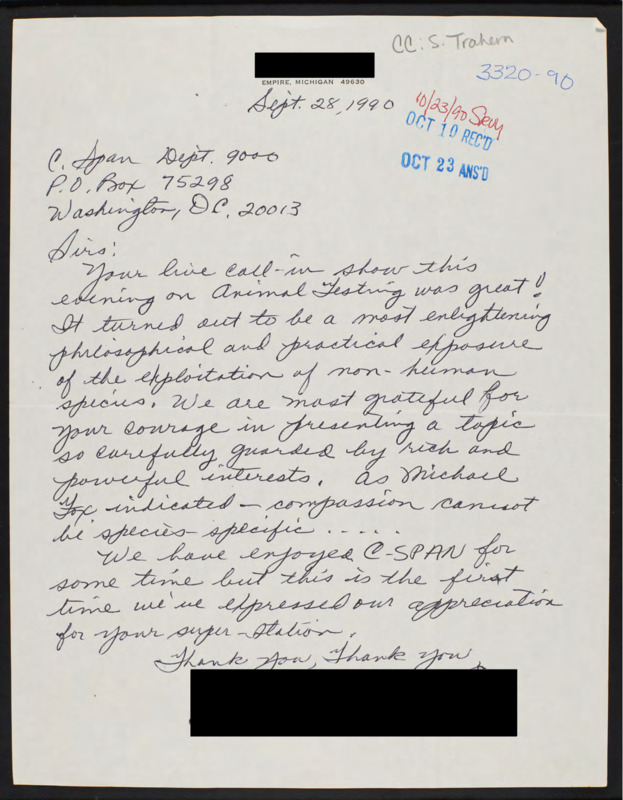 CC: S. Trahern
3320-90
EMPIRE, MICHIGAN 49630
Sept. 28, 1990
10/23/90
OCT 19 REC'D
OCT 23 ANS'D
C. Span Dept. 9000
P.O. Box 75298
Washington, DC. 20013
Sirs:
Your live call-in show this
evening on Animal Testing was great!
It turned out to be a most enlightening
philosophical and practical exposure
of the exploitation of non-human
species. We are most grateful for
your courage in presenting a topic
so carefully guarded by rich and
powerful interests. As Michael
Fox indicated - compassion cannot
be species-specific . . . . .
We have enjoyed C-SPAN for
some time but this is the first
time we've expressed our appreciation
for your super-station.
Thank you, Thank you,